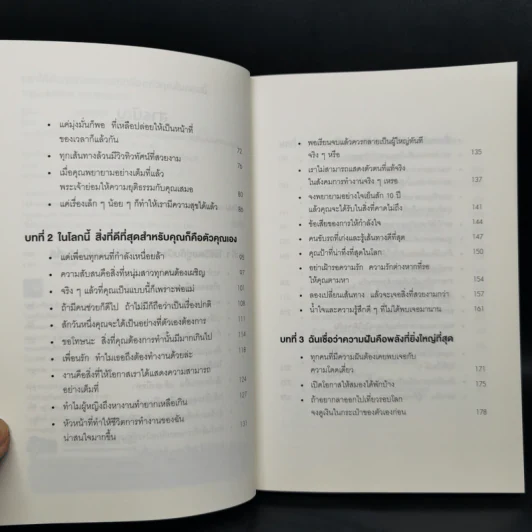 แค่มุ่งมั่นก็พอ ที่เหลือปล่อยให้เป็นหน้าที่
ของเวลาก็แล้วกัน 72
ทุกเส้นทางล้วนมีวิวทิวทัศน์ที่สวยงาม
เมื่อคุณพยายามอย่างเต็มที่แล้ว
พระเจ้าย่อมให้ความยุติธรรมกับคุณเสมอ
แค่เรื่องเล็ก ๆ น้อย ๆ ก็ทำให้เรามีความสุขได้แล้ว
บทที่ 2 ในโลกนี้ สิ่งที่ดีที่สุดสำหรับคุณก็คือตัวคุณเอง
แด่เพื่อนทุกคนที่กำลังเหนื่อยล้า 95
ความสับสนคือสิ่งที่หนุ่มสาวทุกคนต้องเผชิญ 97
จริง ๆ แล้วที่คุณเป็นแบบนี้ก็เพราะพ่อแม่
ถ้ามีคนช่วยก็ดีไป ถ้าไม่มีก็ถือว่าเป็นเรื่องปกติ
สักวันหนึ่งคุณจะได้เป็นอย่างที่ตัวเองต้องการ
ขอโทษนะ สิ่งที่คุณต้องการทำนั้นมีมากเกินไป
เพื่อนรัก ทำไมเธอถึงต้องทำงานด้วยล่ะ
งานคือสิ่งที่ให้โอกาสเราได้แสดงความสามารถ
อย่างเต็มที่
ทำไมผู้หญิงถึงหางานทำยากเหลือเกิน
หัวหน้าที่ทำให้ชีวิตการทำงานของฉัน
น่าสนใจมากขึ้น
พอเรียนจบแล้วควรกลายเป็นผู้ใหญ่ทันที
จริง ๆ หรือ 135
เราไม่สามารถแสดงตัวตนที่แท้จริง
ในสังคมการทำงานจริง ๆ เหรอ 137
จงพยายามอย่างใจเย็นสัก 10 ปี
แล้วคุณจะได้รับในสิ่งที่คาดไม่ถึง 141
ข้อเสียของการให้กำลังใจ 144
คนขับรถที่เก่งและรู้เส้นทางดีที่สุด 147
คุณป้าที่น่าทึ่งที่สุดในโลก 150
อย่าเฝ้ารอความรัก ความรักต่างหากที่รอ
ให้คุณตามหา 154
ลองเปลี่ยนเส้นทาง แล้วจะเจอสิ่งที่สวยงามกว่า 157
น้ำใจและความรู้สึกดี ๆ ที่ไม่ได้พบเจอมานาน 161
บทที่ 3 ฉันเชื่อว่าความฝันคือพลังที่ยิ่งใหญ่ที่สุด
ทุกคนที่มีความฝันต้องเคยพบเจอกับ
ความโดดเดี่ยว 171
เปิดโอกาสให้สมองได้พักบ้าง 175
ถ้าอยากลาออกไปเที่ยวรอบโลก
จงดูเงินในกระเป๋าของตัวเองก่อน 178